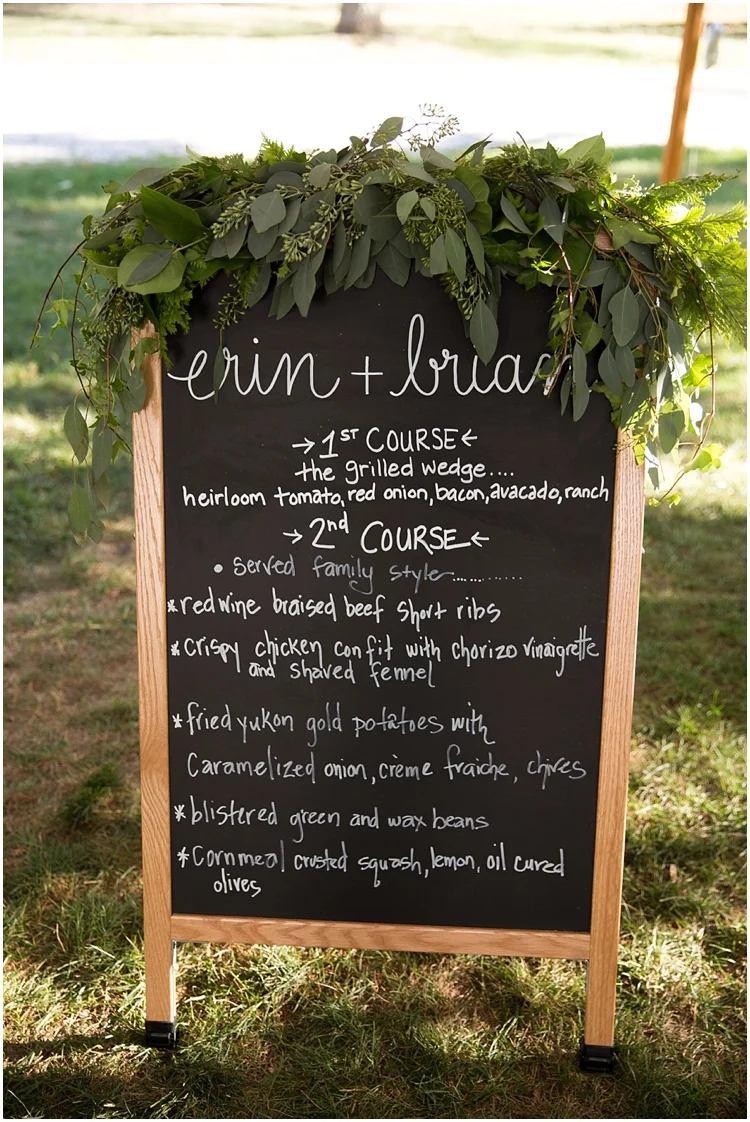 erin +
→ 1ST COURSE ←
the grilled wedge....
heirloom tomato, red onion, bacon, avacado, ranch
→ 2nd COURSE ←
• served family style..............
*red wine braised beef short ribs
*crispy chicken confit with chorizo vinaigrette
and shaved fennel
*fried yukon gold potatoes with
Caramelized onion, crème fraiche, chives
*blistered green and wax beans
*Cornmeal crusted squash, lemon, oil cured
olives